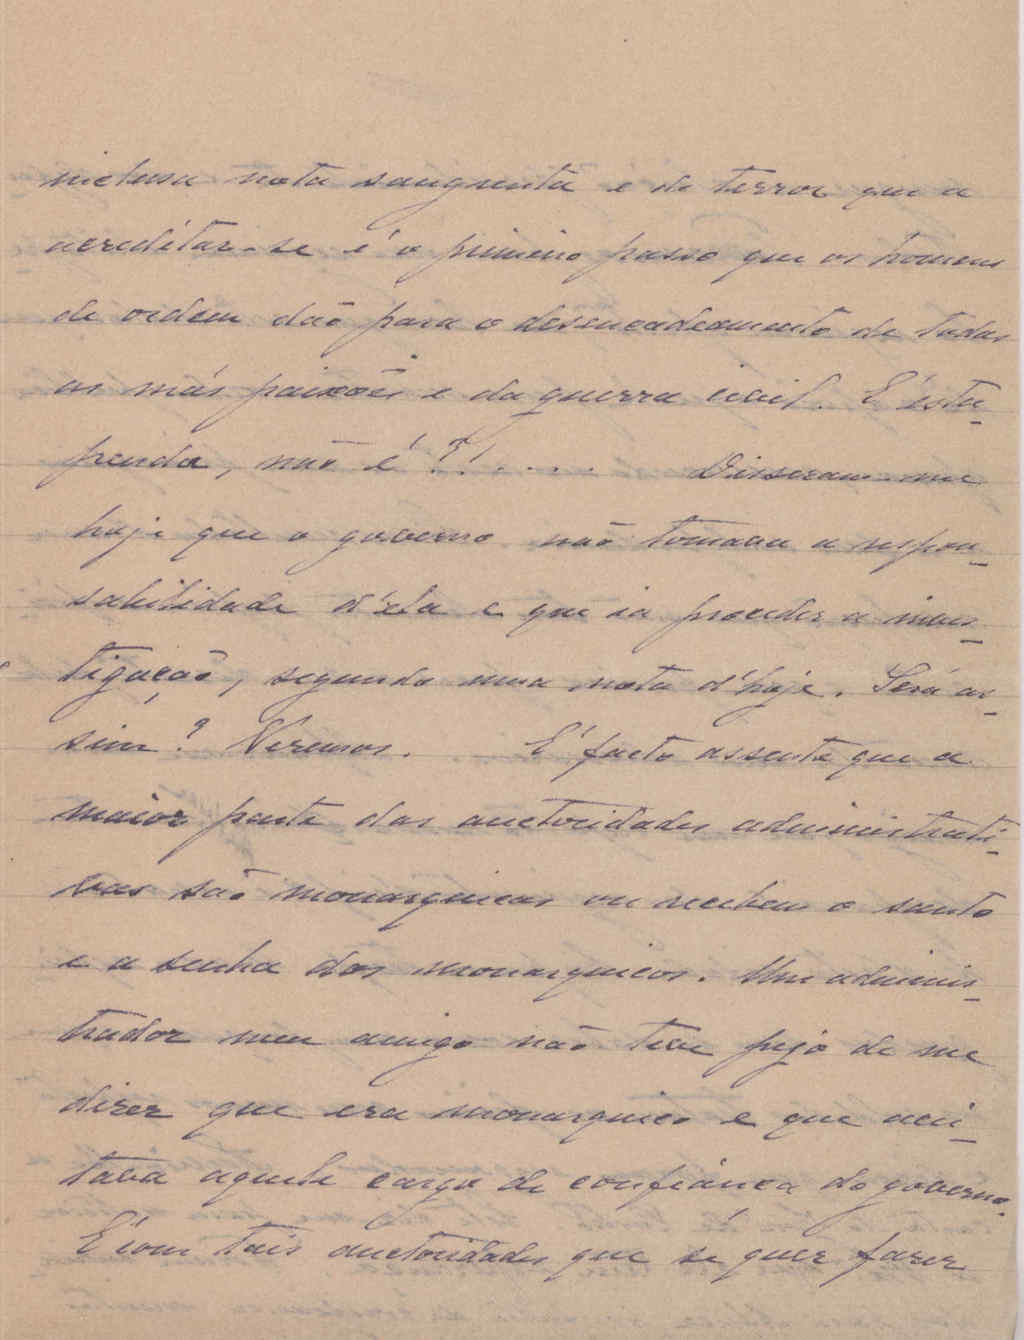 nota sangrenta e de terror que a
acreditar-se é o primeiro passo que os homens
de ordem dão para o desencadeamento de todas
as más paixões e da guerra civil. É estu-
penda, não é?!.... Disseram-me
hoje que o governo não tomava a respon-
sabilidade d'ela e que ia proceder a inves-
tigação, segundo uma nota d'hoje. Será as-
sim? Veremos. É facto assente que a
maior parte das auctoridades administrati-
vas são monarquicas ou recebem o santo
e a senha dos monarquicos. Um adminis-
trador meu amigo não teve pejo de me
dizer que era monarquico e que acei-
tava aquele cargo de confiança do governo.
É com tais auctoridades que se quer fazer